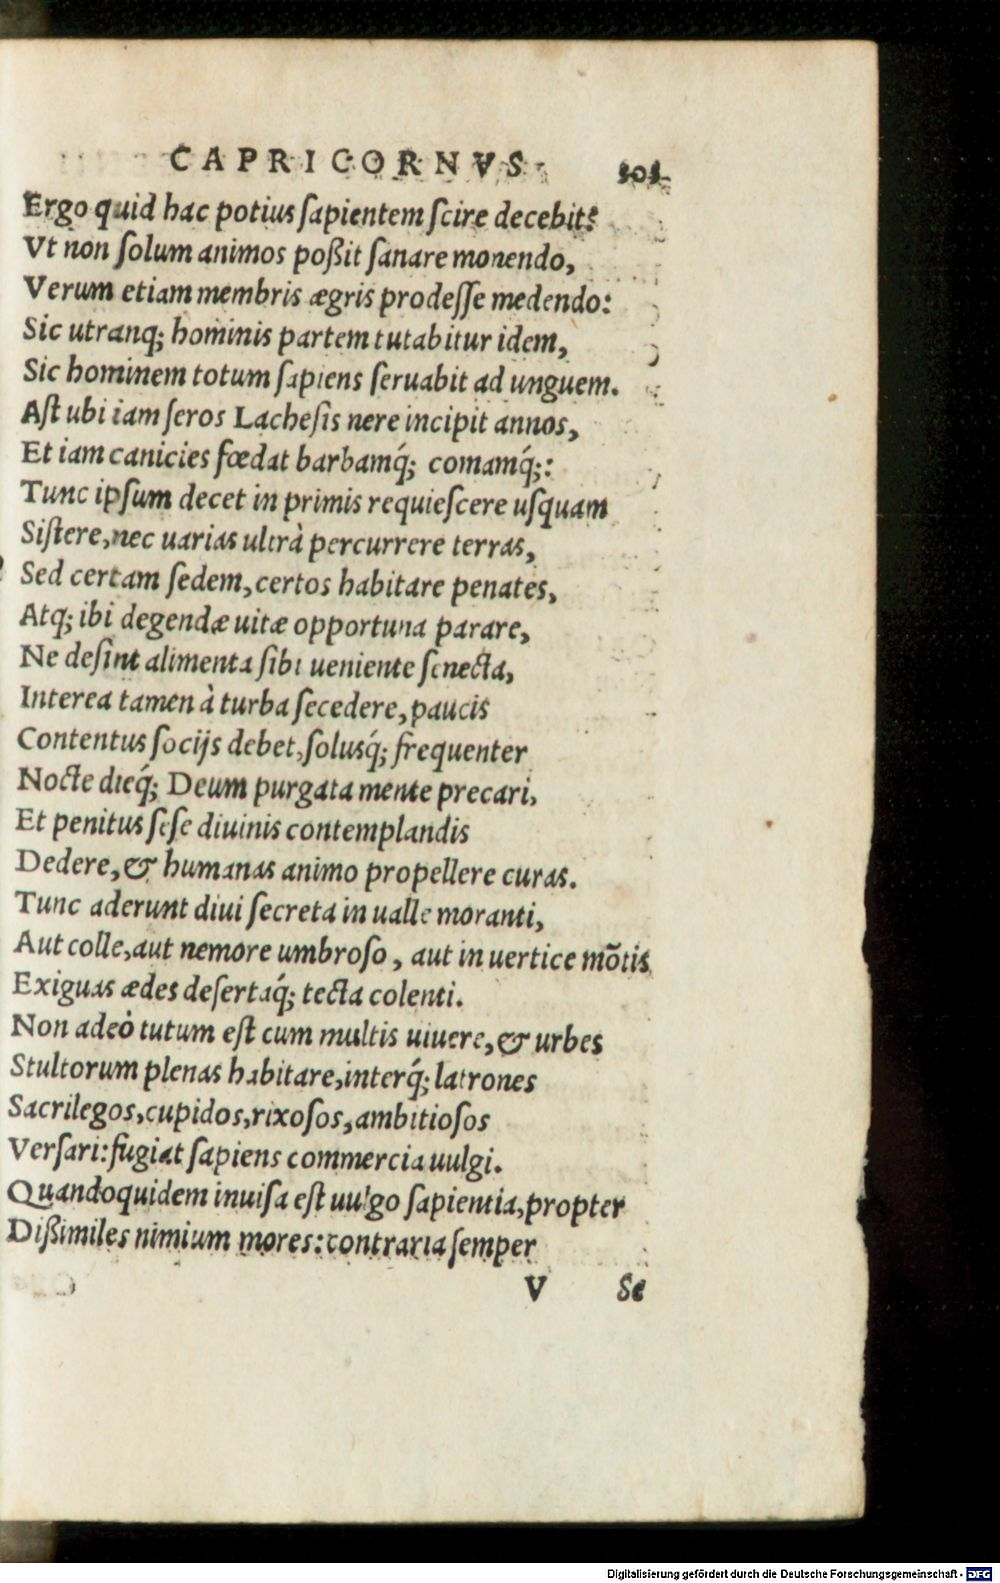 CAPRICORNVS
Ergo quid hac potius ſapientem ſcire decebit?
Vt non ſolum animos poßit ſanare monendo,
Verum etiam membris ægris prodeſſe medendo:
Sic utranq; hominis partem tutabitur idem,
Sic hominem totum ſapiens ſeruabit ad unguem.
Aſt ubi iam ſeros Lacheſis nere incipit annos,
Et iam canicies fœdat barbamq́; comamq́;:
Tunc ipſum decet in primis requieſcere uſquam
Siſtere, nec uarias ultrà percurrere terras,
Sed certam ſedem, certos habitare penates,
Atq; ibi degendæ uitæ opportuna parare,
Ne deſint alimenta ſibi ueniente ſenecta,
Interea tamen à turba ſecedere, paucis
Contentus ſocijs debet, ſolusq́; frequenter
Nocte dieq́; Deum purgata mente precari,
Et penitus ſeſe diuinis contemplandis
Dedere, & humanas animo propellere curas.
Tunc aderunt diui ſecreta in ualle moranti,
Aut colle, aut nemore umbroſo, aut in uertice mõtis
Exiguas ædes deſertaq́; tecta colenti.
Non adeò tutum eſt cum multis uiuere, & urbes
Stultorum plenas habitare, interq́; latrones
Sacrilegos, cupidos, rixoſos, ambitioſos
Verſari: fugiat ſapiens commercia uulgi.
Quandoquidem inuiſa eſt uulgo ſapientia, propter
Dißimiles nimium mores: contraria ſemper
V Se
Digitalisierung gefördert durch die Deutsche Forschungsgemeinschaft - DFG